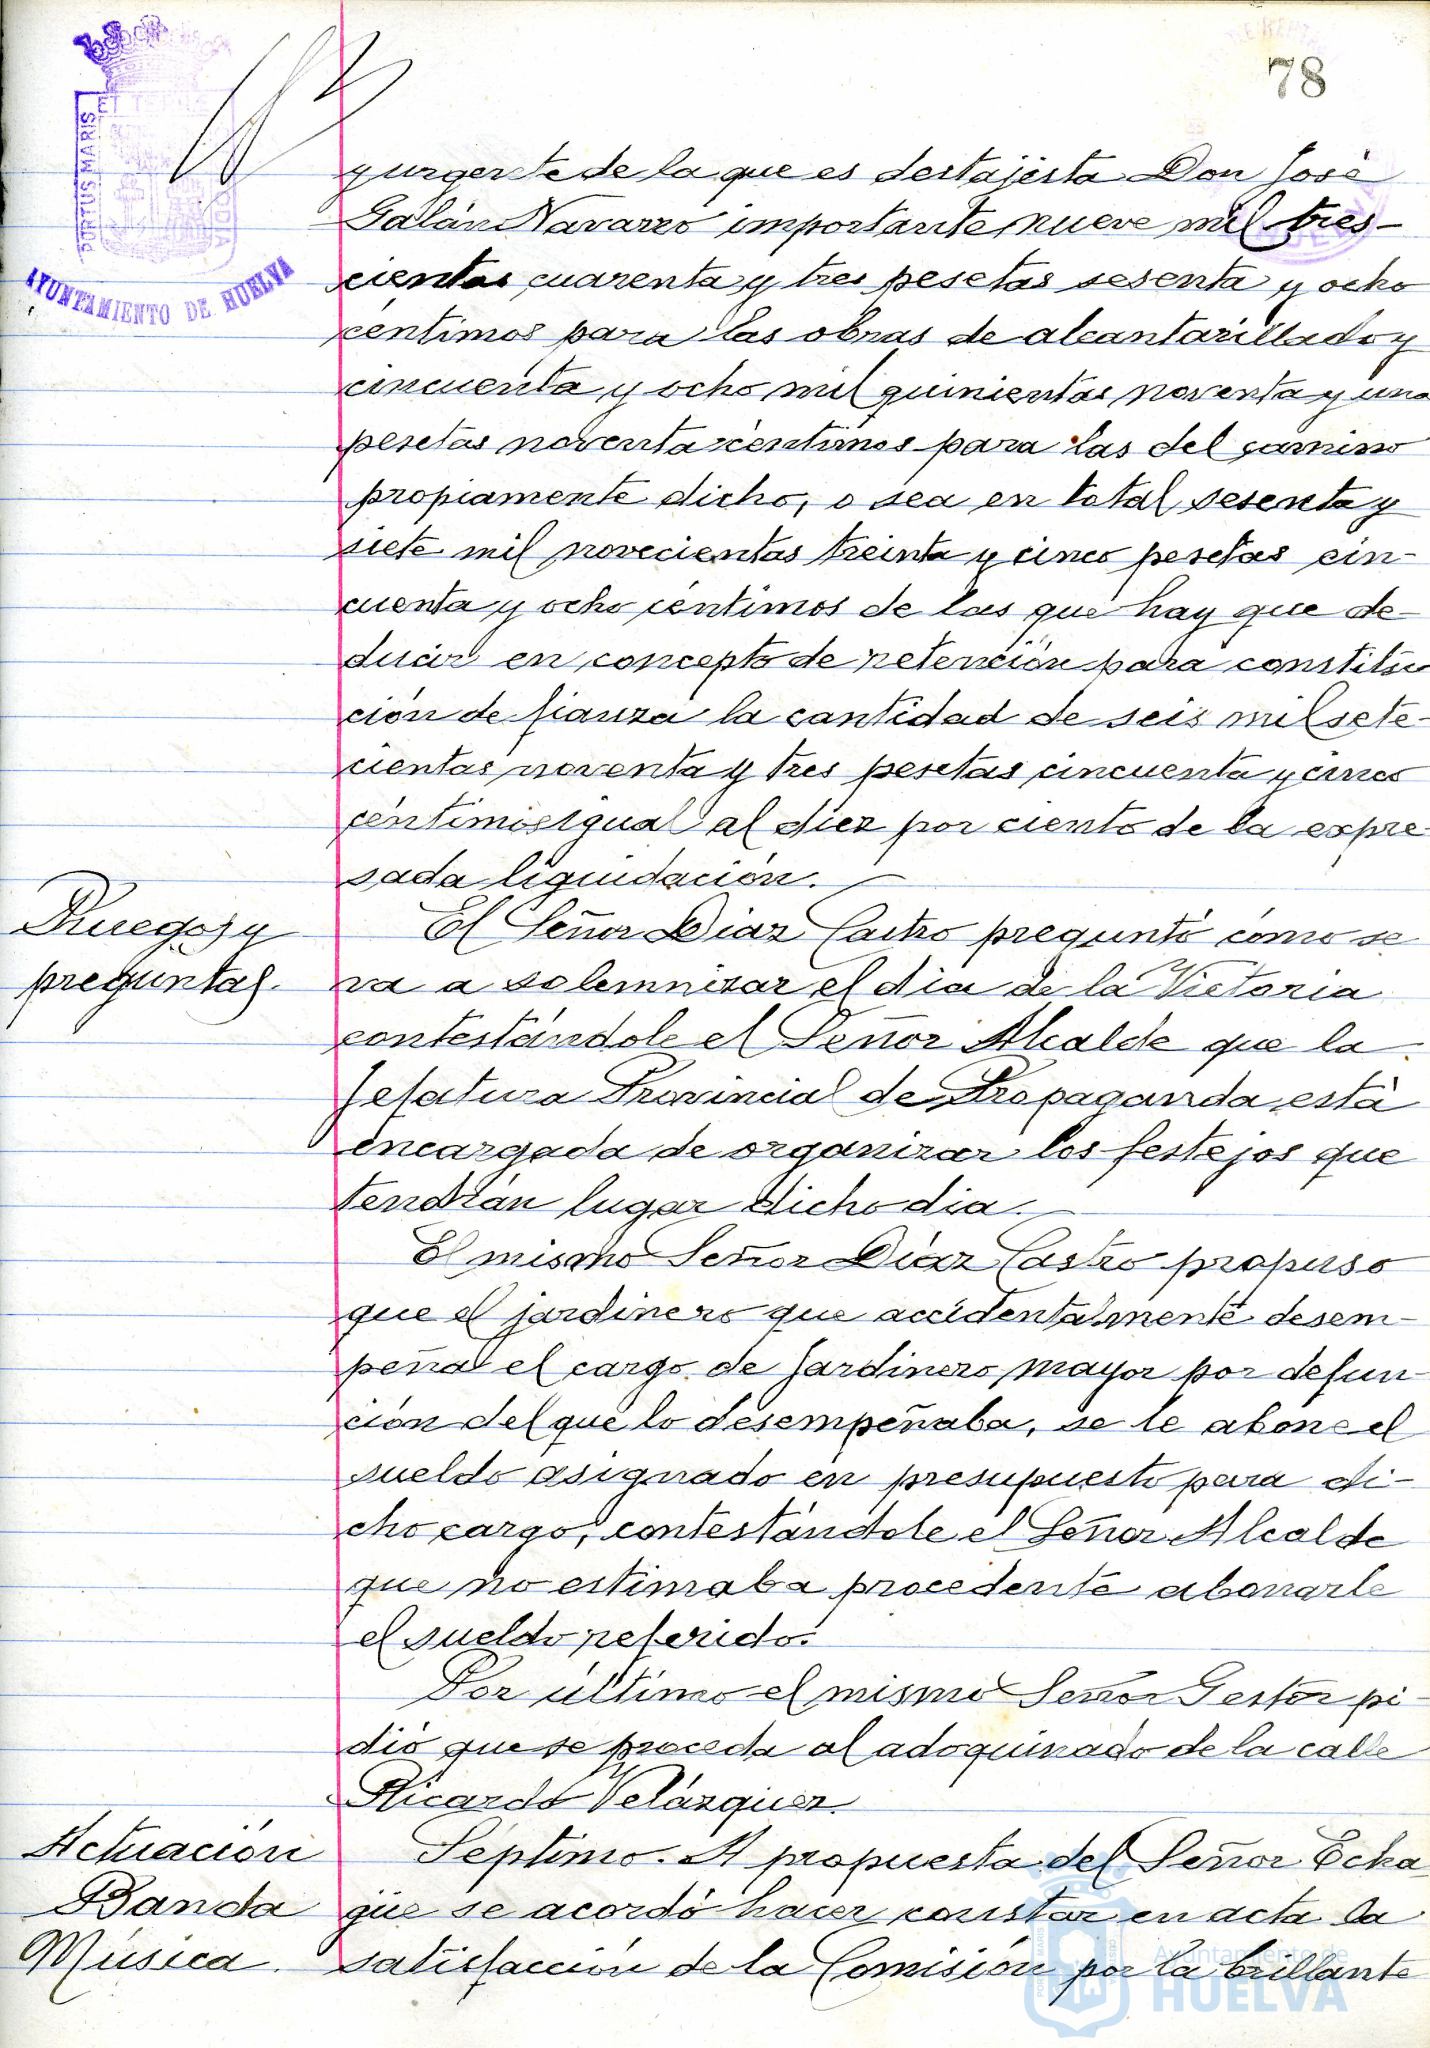 78
PORTUS MARIS
ET TERRÆ
CUSTODIA
AYUNTAMIENTO DE HUELVA
y urgente de la que es destajista Don José
Galán Navarro importante, nueve mil tres-
cientas cuarenta y tres pesetas sesenta y ocho
céntimos para las obras de alcantarillado y
cincuenta y ocho mil quinientas noventa y una
pesetas noventa céntimos para las del camino
propiamente dicho, o sea en total sesenta y
siete mil novecientas treinta y cinco pesetas cin-
cuenta y ocho céntimos de las que hay que de-
ducir en concepto de retención para constitu
ción de fianza la cantidad de seis mil sete-
cientas noventa y tres pesetas cincuenta y cinco
céntimos igual al diez por ciento de la expre-
sada liquidación.
Ruegos y
preguntas.
El Señor Diaz Castro preguntó cómo se
va a solemnizar el dia de la Victoria
contestándole el Señor Alcalde que la
Jefatura Provincial de Propaganda está
encargada de organizar los festejos que
tendrán lugar dicho dia.
El mismo Señor Díaz Castro propuso
que el jardinero que accidentalmente desem-
peña el cargo de Jardinero mayor por defun-
ción del que lo desempeñaba, se le abone el
sueldo asignado en presupuesto para di-
cho cargo, contestándole el Señor Alcalde
que no estimaba procedente abonarle
el sueldo referido.
Por último el mismo Señor Gestor pi-
dió que se proceda al adoquinado de la calle
Ricardo Velázquez.
Actuación
Banda
Música.
Séptimo. A propuesta del Señor Echa
güe se acordó hacer constar en acta la
satisfacción de la Comisión por la brillante
Ayuntamiento de
HUELVA